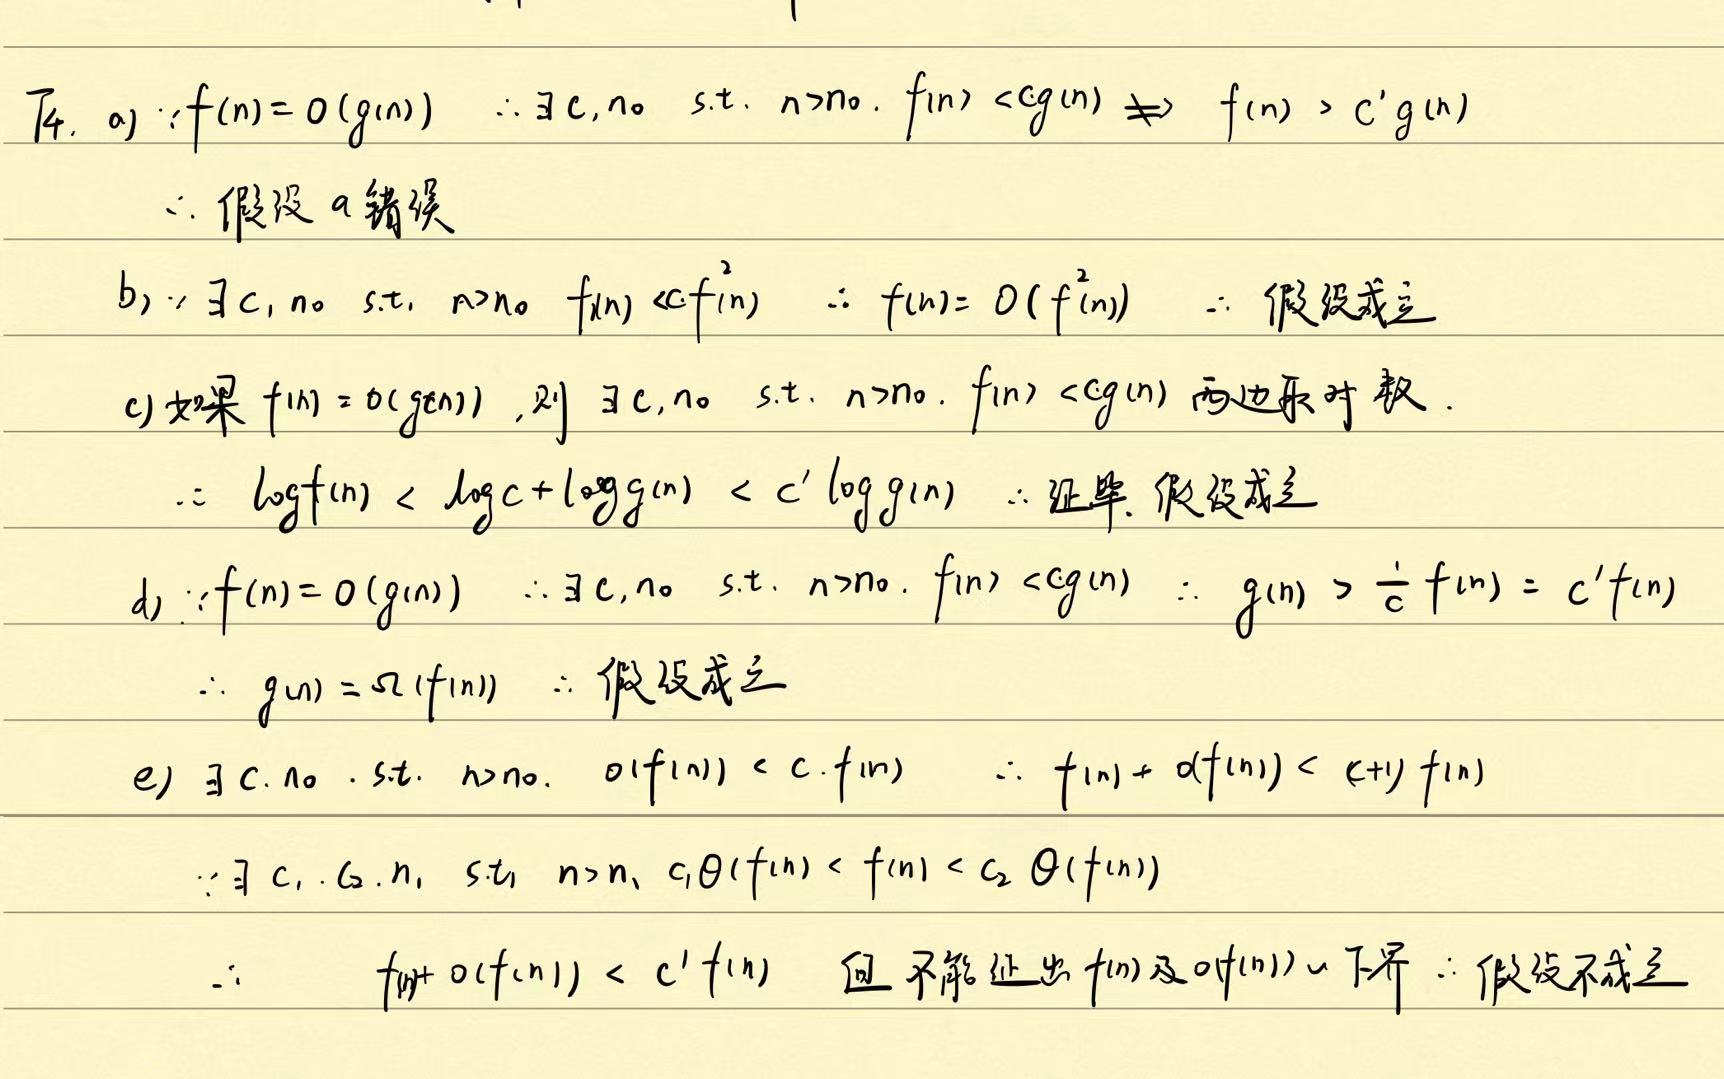 T4. a) ∵ f(n) = O(g(n)) ∴ ∃ c, n₀ s.t. n>n₀. f(n) < cg(n) ⇏ f(n) > c'g(n)
∴ 假设 a 错误
b) ∵ ∃ c, n₀ s.t. n>n₀ f(n) < c·f²(n) ∴ f(n) = O(f²(n)) ∴ 假设成立
c) 如果 f(n) = O(g(n)), 则 ∃ c, n₀ s.t. n>n₀. f(n) < cg(n) 两边取对数.
∴ logf(n) < logc + logg(n) < c' logg(n) ∴ 证毕. 假设成立
d) ∵ f(n) = O(g(n)) ∴ ∃ c, n₀ s.t. n>n₀. f(n) < cg(n) ∴ g(n) > 1/c f(n) = c'f(n)
∴ g(n) = Ω(f(n)) ∴ 假设成立
e) ∃ c. n₀. s.t. n>n₀. o(f(n)) < c·f(n) ∴ f(n) + o(f(n)) < (c+1) f(n)
∵ ∃ c₁. c₂. n₁ s.t. n>n₁ c₁θ(f(n) < f(n) < c₂ θ(f(n))
∴ f(n)+ o(f(n)) < c' f(n) 但不能证出 f(n) 及 o(f(n)) 下界 ∴ 假设不成立